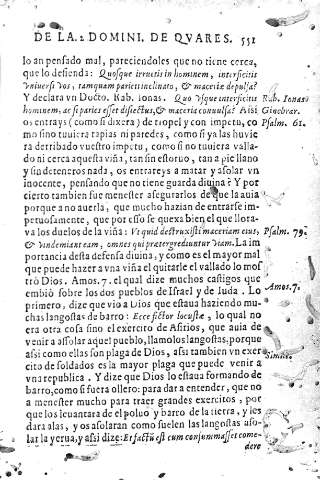 DE LA.2 DOMINI. DE QVARES. 551
lo an pensado mal, pareciendoles que no tiene cerca,
que lo defienda: Quosque irruetis in hominem, interficitis
vniuersi vos, tamquam parieti inclinato, & maceriæ depulsæ?
Y declara vn Docto. Rab. Ionas. Quo vsque interficitis Rab. Ionas
hominem, ac si paries esset disiectus, & maceria conuulsa? Assi Ginebrar.
os entrays (como si dixera) de tropel y con impetu, co Psalm. 61.
mo sino tuuiera tapias ni paredes, como si ya las huuie
ra derribado vuestro impetu, como si no tuuiera valla-
do ni cerca aquesta viña, tan sin estoruo, tan a pie llano
y sin deteneros nada, os entrareys a matar y asolar vn
inocente, pensando que no tiene guarda diuina? Y por
cierto tambien fue menester asegurarlos de que la auia
porque a no auerla, que mucho hazian de entrarse im-
petuosamente, que por esso se quexa bien el que llora-
ua los duelos de la viña: Vt quid destruxisti maceriam eius, Psalm. 79.
& vindemiant eam, omnes qui prætergrediuntur viam. La im
portancia desta defensa diuina, y como es el mayor mal
que puede hazer a vna viña el quitarle el vallado lo mos
trò Dios. Amos. 7. el qual dize muchos castigos que Amos. 7.
embiò sobre los dos pueblos de Israel y de Iuda. Lo
primero, dize que vio a Dios que estaua haziendo mu-
chas langostas de barro: Ecce fictor locustæ, lo qual no
era otra cosa sino el exercito de Asirios, que auia de
venir a assolar aquel pueblo, llamolos langostas, porque
assi como ellas son plaga de Dios, assi tambien vn exer Simile.
cito de soldados es la mayor plaga que puede venir a
vna republica. Y dize que Dios lo estaua formando de
barro, como si fuera ollero: para dar a entender, que no
a menester mucho para traer grandes exercitos, por
que los leuantara de el poluo y barro de la tierra, y les
dara alas, y os asolaran como suelen las langostas aso-
lar la yerua, y assi dize: Et factũ est cum consummasset come-
dere